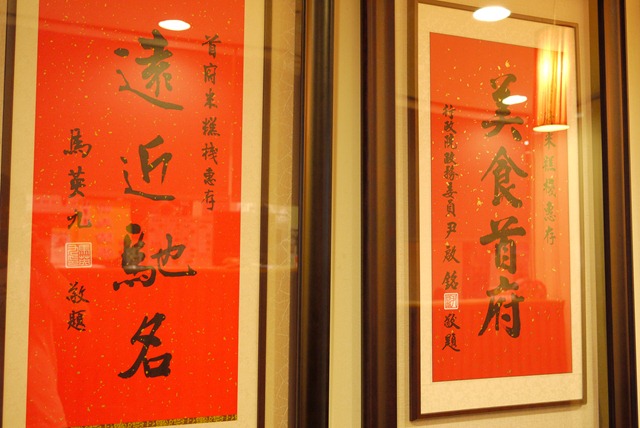 首府米糕棧惠存
遠近馳名
馬英九敬題
米糕棧惠存
美食首府
行政院政務委員尹啟銘敬題